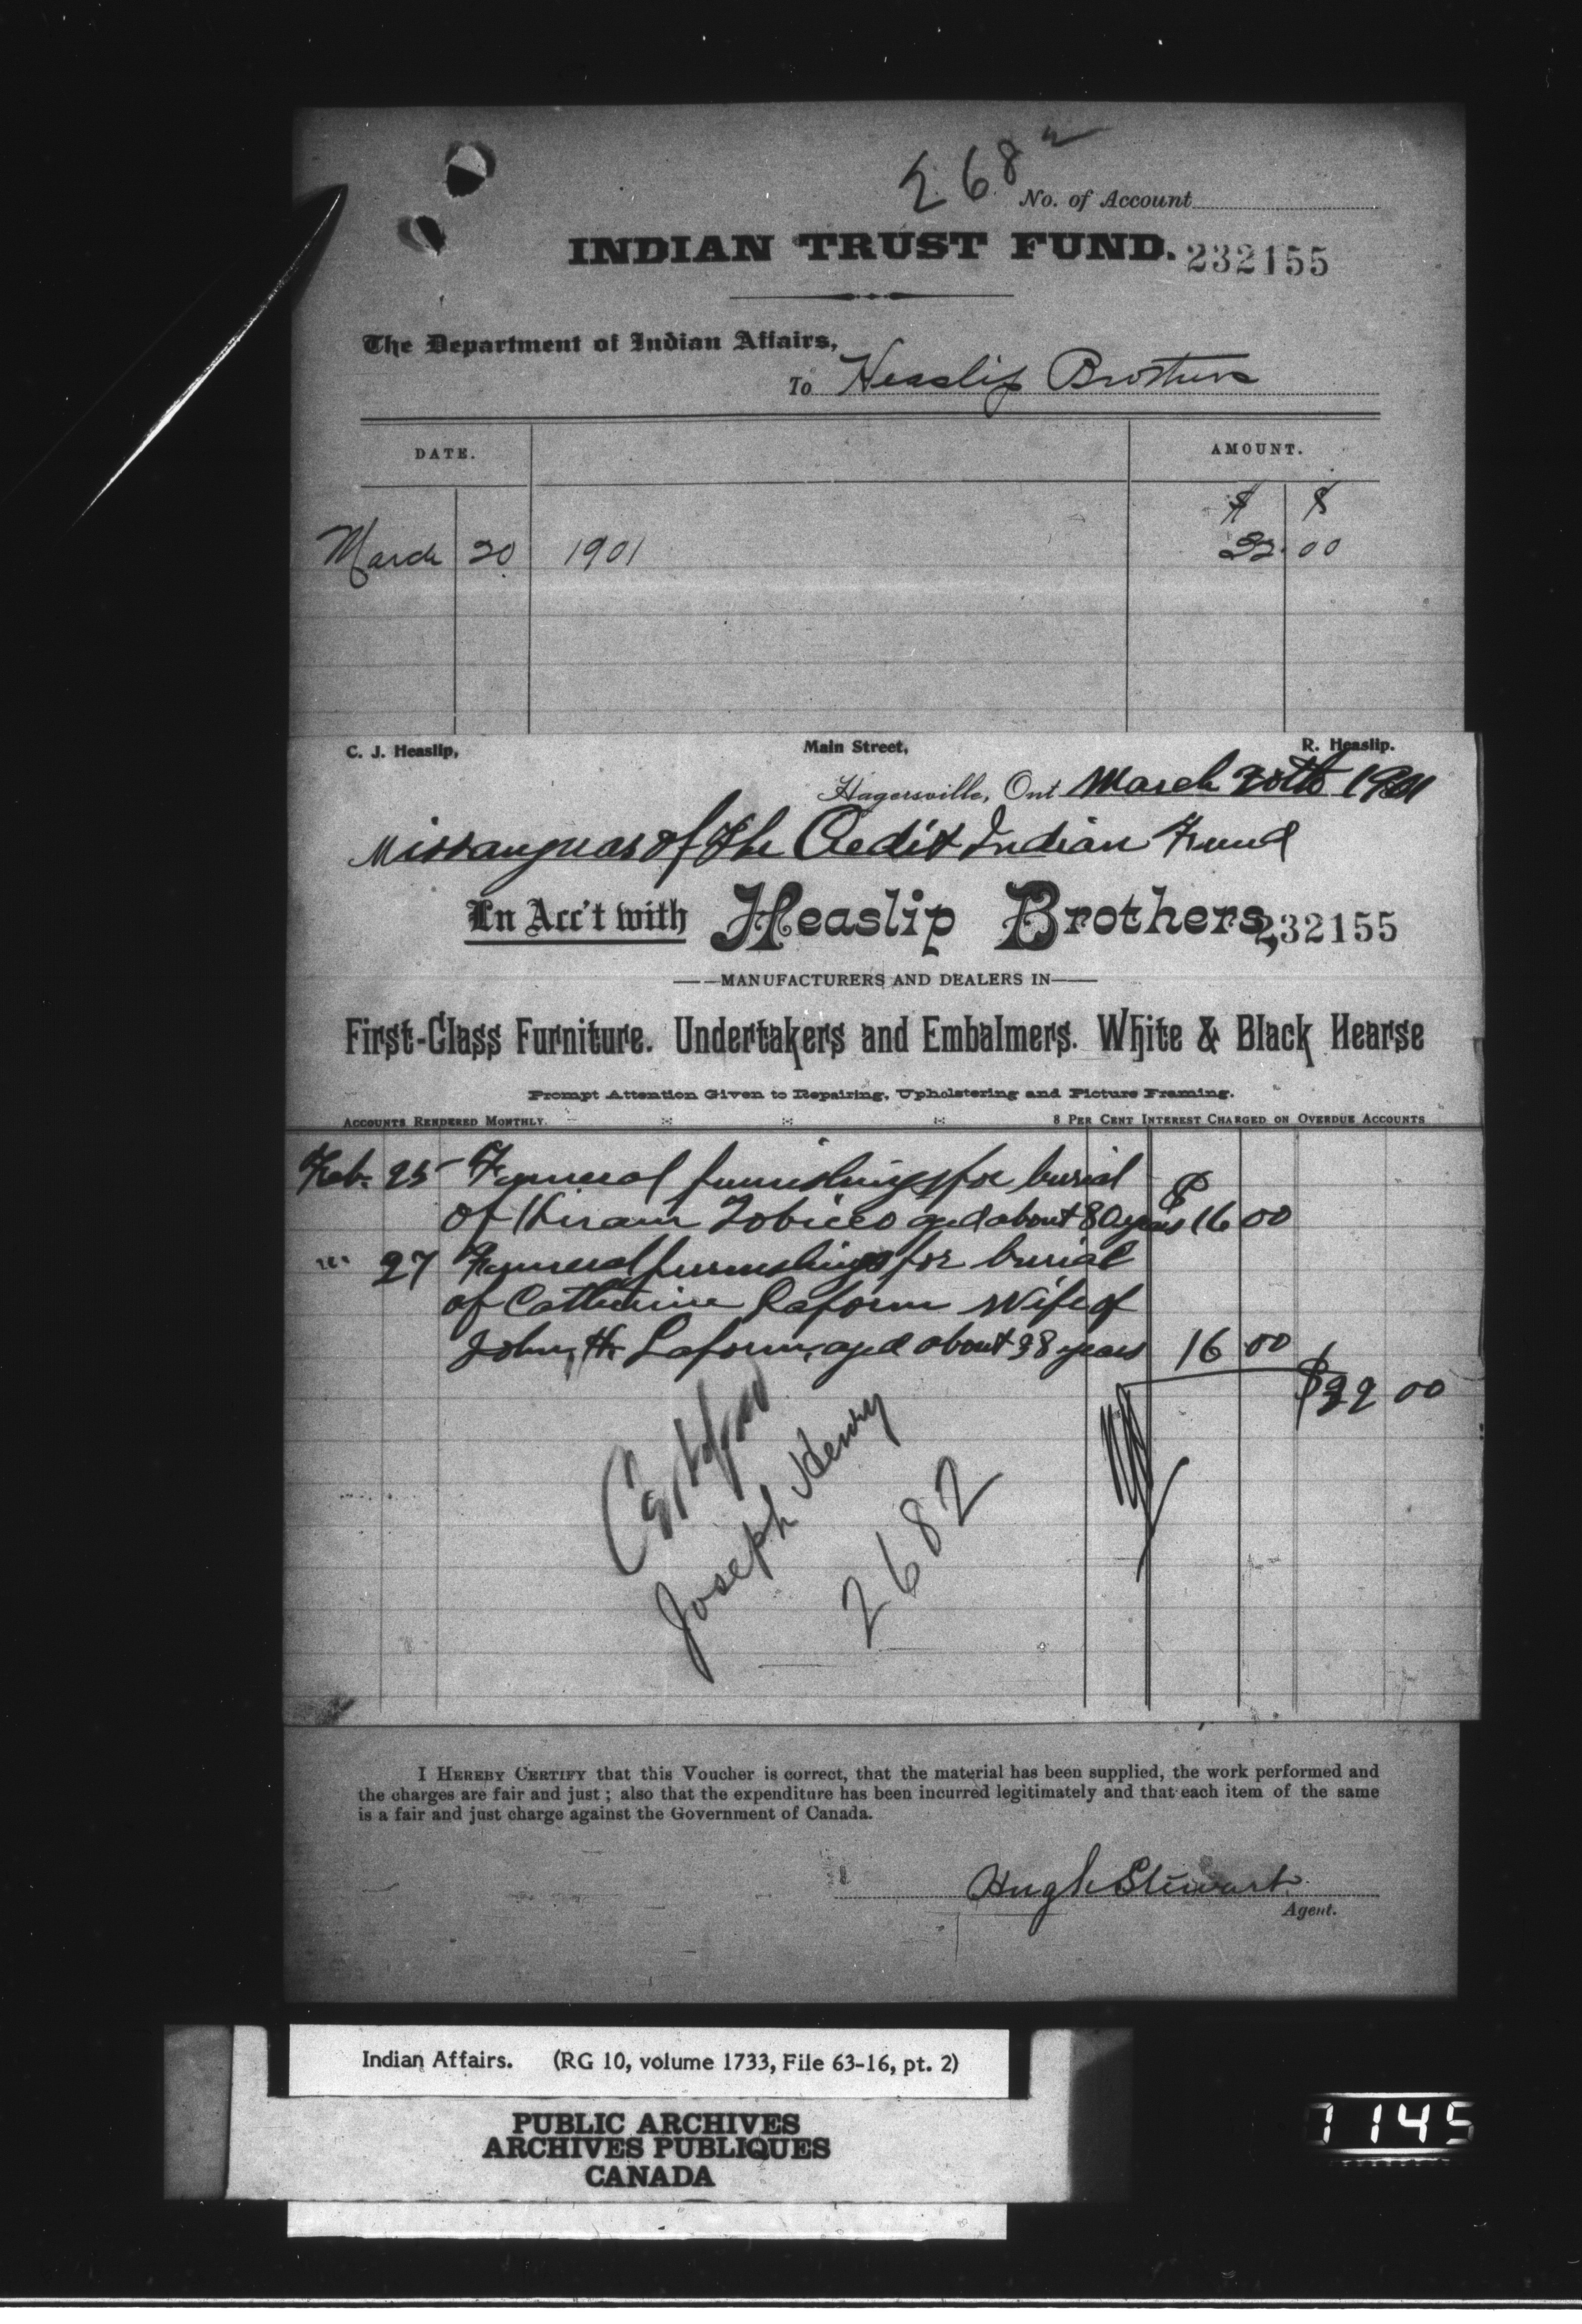 2682
No. of Account
INDIAN TRUST FUND. 232155
The Department of Indian Affairs,
To Heaslip Brothers
DATE. AMOUNT.
$ $
March 20 1901 32 00
C. J. Heaslip, Main Street, R. Heaslip.
Hagersville, Ont March 20th 1901
Missauguas of the Credit Indian Fund
In Acc't with Heaslip Brothers, 232155
MANUFACTURERS AND DEALERS IN
First-Class Furniture. Undertakers and Embalmers. White & Black Hearse
Prompt Attention Given to Repairing, Upholstering and Picture Framing.
ACCOUNTS RENDERED MONTHLY. 8 PER CENT INTEREST CHARGED ON OVERDUE ACCOUNTS
Feb. 25 Funeral furnishings for burial
of Hiram Tobicco aged about 80 years $16 00
" 27 Funeral furnishings for burial
of Catherine Laform Wife of
John H. Laform, aged about 38 years 16 00
$32 00
Joseph Henry
2682
I HEREBY CERTIFY that this Voucher is correct, that the material has been supplied, the work performed and
the charges are fair and just ; also that the expenditure has been incurred legitimately and that each item of the same
is a fair and just charge against the Government of Canada.
Hugh Stewart
Agent.
Indian Affairs. (RG 10, volume 1733, File 63-16, pt. 2)
PUBLIC ARCHIVES
ARCHIVES PUBLIQUES
CANADA
1145